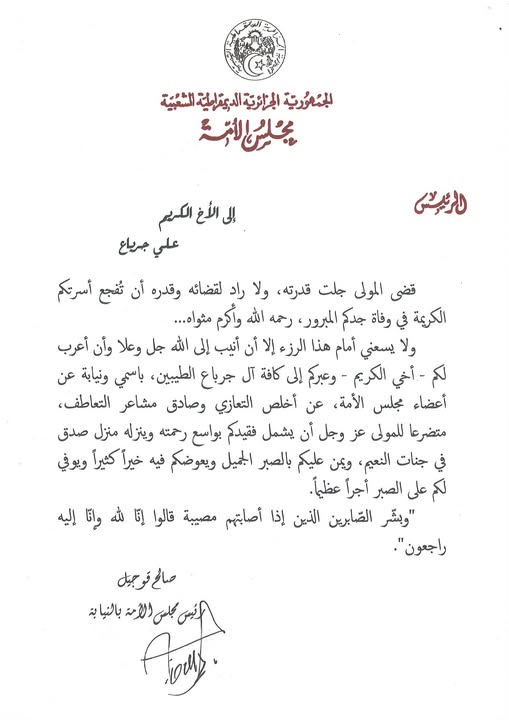 الجمهورية الجزائرية الديمقراطية الشعبية
مجلس الأمة
الرئيس
إلى الأخ الكريم
علي جرباع
قضى المولى جلت قدرته، ولا راد لقضائه وقدره أن تُفجع أسرتكم
الكريمة في وفاة جدكم المبرور، رحمه الله وأكرم مثواه...
ولا يسعني أمام هذا الرزء إلا أن أنيب إلى الله جل وعلا وأن أعرب
لكم - أخي الكريم - وعبركم إلى كافة آل جرباع الطيبين، باسمي ونيابة عن
أعضاء مجلس الأمة، عن أخلص التعازي وصادق مشاعر التعاطف،
متضرعا للمولى عز وجل أن يشمل فقيدكم بواسع رحمته وينزله منزل صدق
في جنات النعيم، ويمن عليكم بالصبر الجميل ويعوضكم فيه خيراً كثيراً ويوفي
لكم على الصبر أجراً عظيماً.
"وبشّر الصّابرين الذين إذا أصابتهم مصيبة قالوا إنّا لله وإنّا إليه
راجعون".
صالح قوجيل
رئيس مجلس الأمة بالنيابة